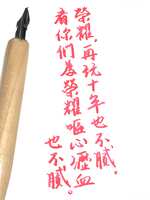 榮耀，再玩十年也不膩，
看你們為榮耀嘔心瀝血
也不膩。